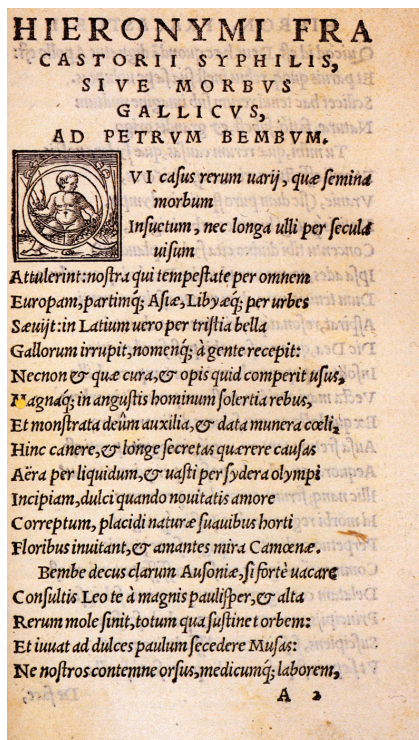 HIERONYMI FRA
CASTORII SYPHILIS,
SIVE MORBVS
GALLICVS,
AD PETRVM BEMBVM.
QVI casus rerum uarij, quæ semina
morbum
Insuetum, nec longa ulli per secula
uisum
Attulerint: nostra qui tempestate per omnem
Europam, partimq; Asiæ, Libyæq; per urbes
Sæuijt: in Latium uero per tristia bella
Gallorum irrupit, nomenq; à gente recepit:
Necnon & quæ cura, & opis quid comperit usus,
Magnaq; in angustis hominum solertia rebus,
Et monstrata deûm auxilia, & data munera cœli,
Hinc canere, & longe secretas quærere causas
Aëra per liquidum, & uasti per sydera olympi
Incipiam, dulci quando nouitatis amore
Correptum, placidi naturæ suauibus horti
Floribus inuitant, & amantes mira Camœnæ.
Bembe decus clarum Ausoniæ, si fortè uacare
Consultis Leo te à magnis paulisper, & alta
Rerum mole sinit, totum qua sustinet orbem:
Et iuuat ad dulces paulum secedere Musas:
Ne nostros contemne orsus, medicumq; laborem,
A 2